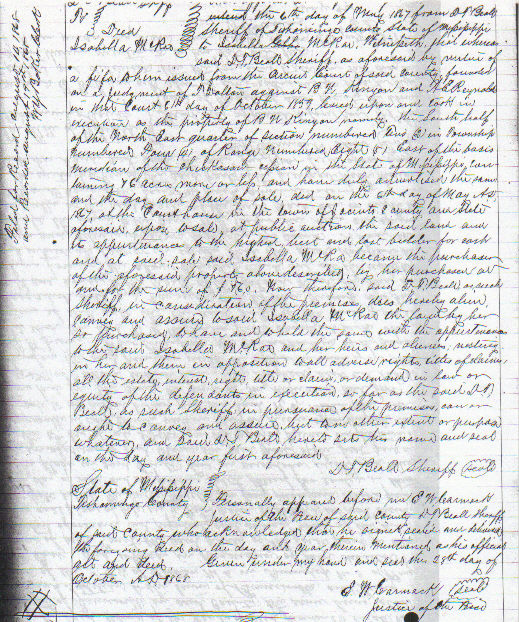 entered the 6th day of May 1867 from D T Beall
To } Deed Sheriff of Tishomingo County State of Mississippi
Isabella McRae to Isabella McRae, Witnesseth, that whereas
said D T Beall Sheriff, as aforesaid by virtue of
a fi fa to him issued from the Circuit Court of said County, founded
on a judgment of Dollars against B N Kinyon and
in this Court day of October 1859, levied upon and took in
execution as the property of B N Kinyon namely the South half
of the North East quarter of Section numbered in Township
numbered Four (4) of Range Numbered Eight (8) East of the basis
meridian of the Chickasaw cession in the State of Mississippi, con-
taining acres more or less and have duly advertised the same
and the day and place of sale, did on the 6th day of May AD
1867, at the Courthouse in the town of Jacinto County and State
aforesaid, expose to sale, at public auction the said land and
its appurtenances to the highest best and last bidder for cash
and at said sale said Isabella McRae became the purchaser
of the aforesaid property above described, by her purchased at
and for the sum of Now therefore said D T Beall as such
Sheriff, in consideration of the premises, does hereby alien,
convey and assure to said Isabella McRae the land by her
so purchased, to have and to hold the same with the appurtenances
to the said Isabella McRae and her heirs and assigns, vesting
in her and them in opposition to all adverse rights, titles or claims,
all the estate, interest, right, title or claim, or demand in law or
equity of the defendants in execution so far as the said D T
Beall as such Sheriff in pursuance of the premises, can or
ought to convey and assure, but to no other extent or purpose
whatever, and said D T Beall hereto sets his name and seal
on the day and year first aforesaid
D T Beall Sheriff (Seal)
State of Mississippi }
Tishomingo County } Personally appeared before me E W Carmack
Justice of the Peace of said County D T Beall Sheriff
of said County who acknowledged that he signed sealed and delivered
the foregoing deed on the day and year therein mentioned as his official
act and deed. Given under my hand and seal this 28th day of
October AD 1868
E W Carmack (Seal)
Justice of the Peace
Filed for Record August 1868
and Recorded August